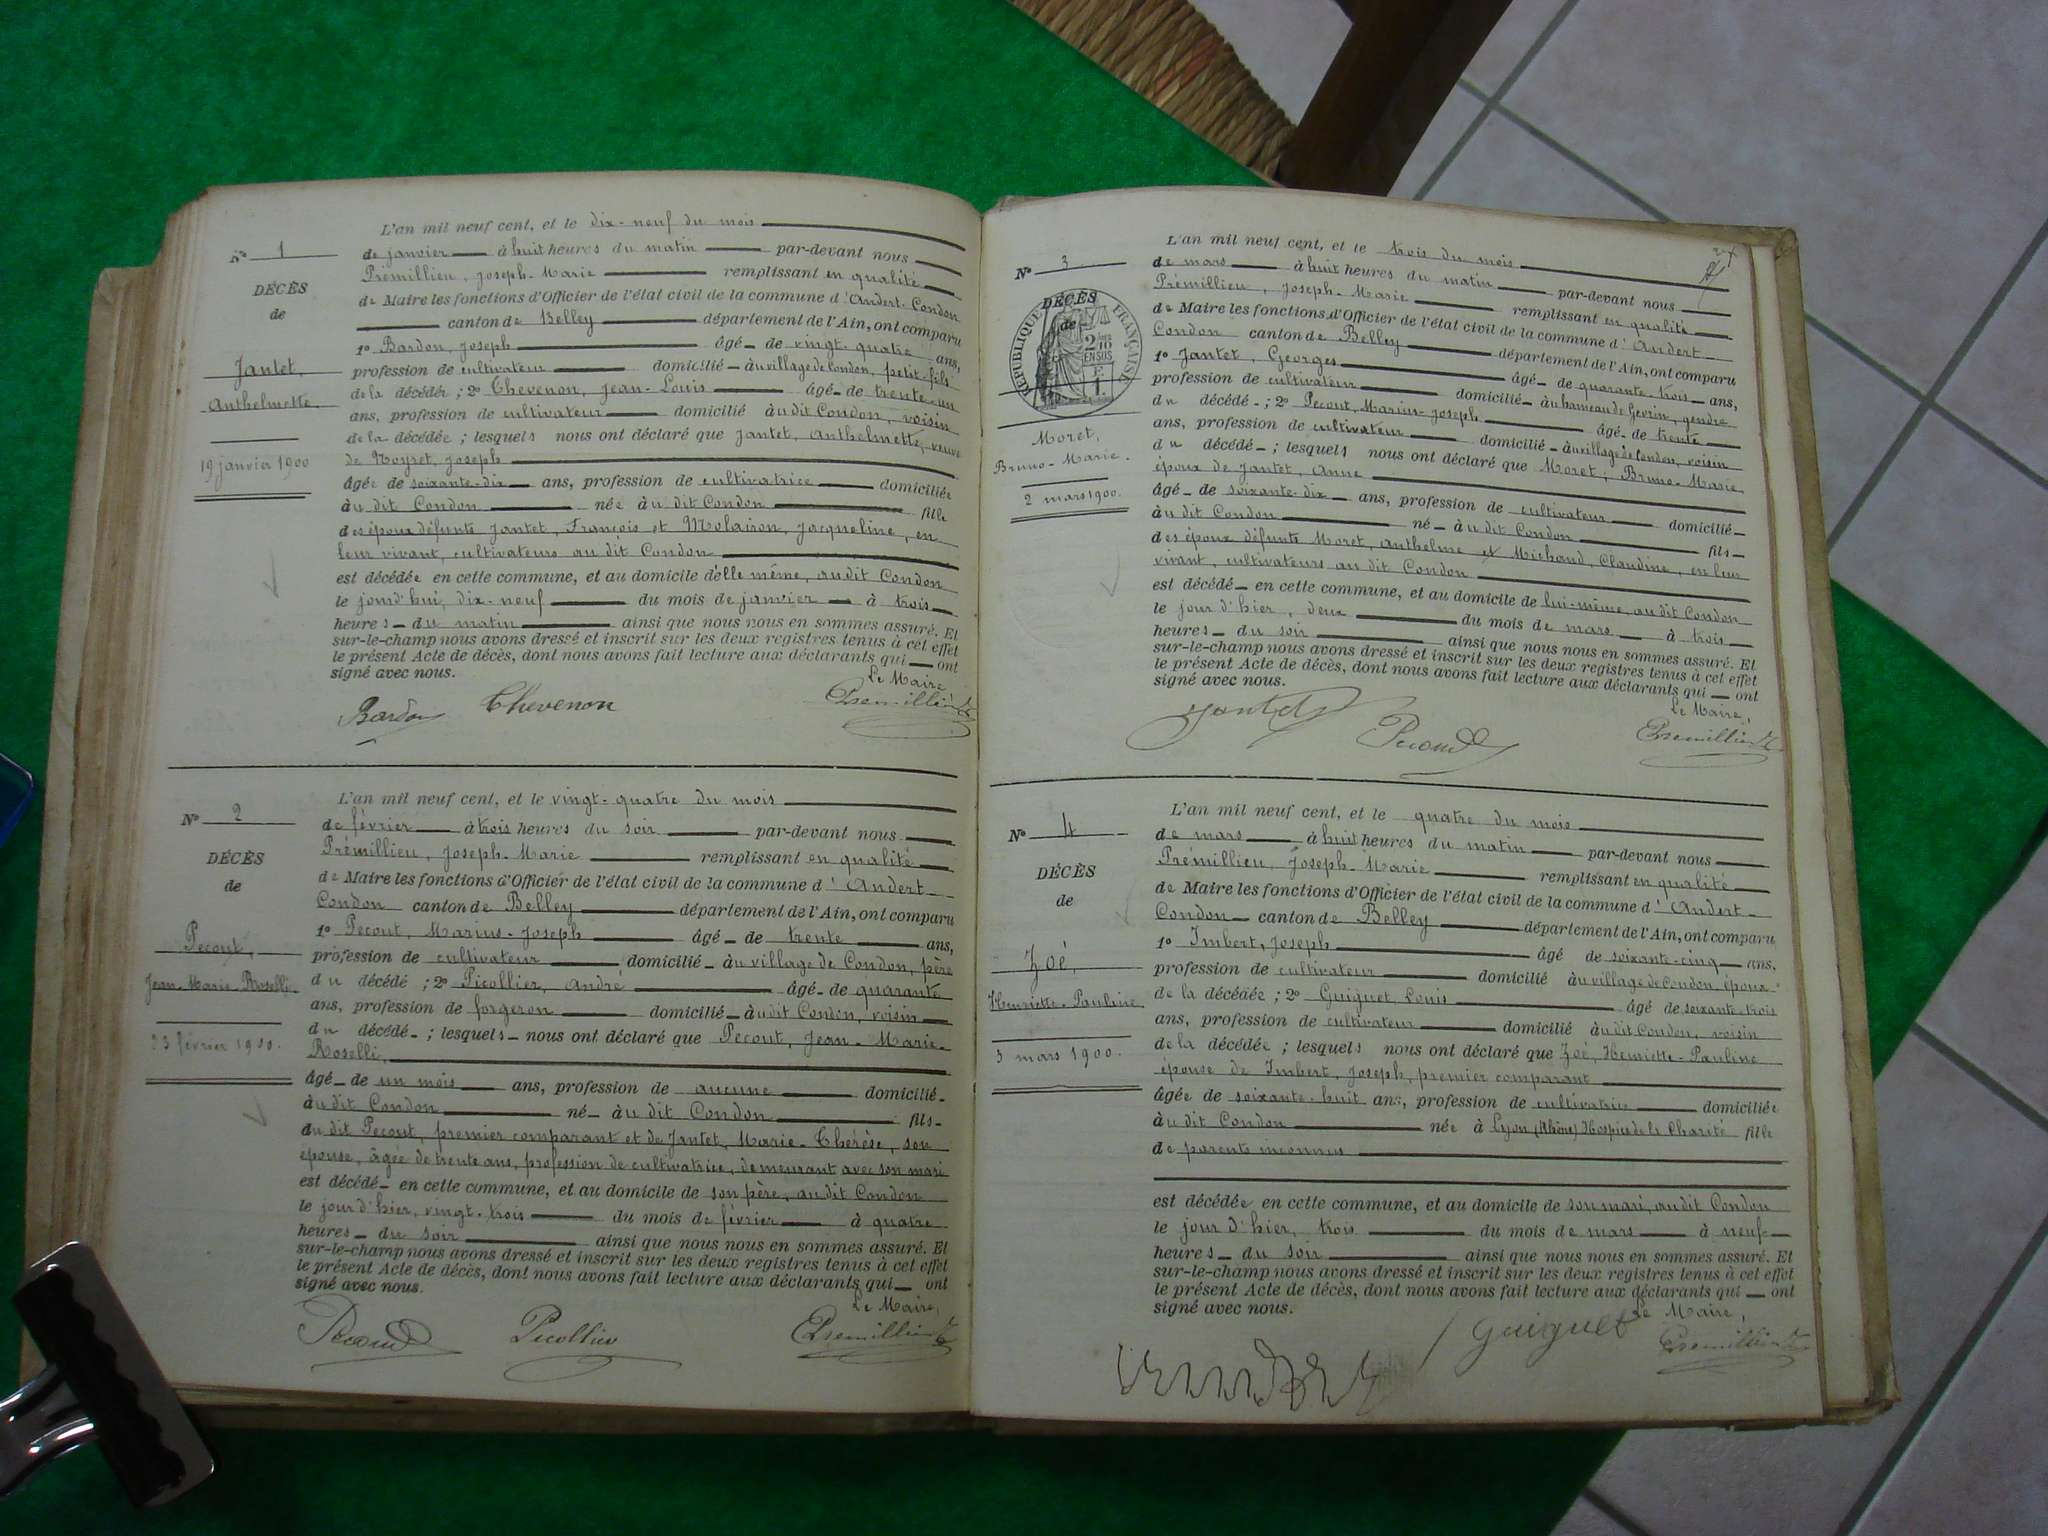 L'an mil neuf cent, et le dix-neuf du mois
N° 1
de janvier à huit heures du matin par-devant nous
Prémillieu, Joseph-Marie remplissant en qualité
DÉCÈS
de Maire les fonctions d'Officier de l'état civil de la commune d'Andert-Condon
de
canton de Belley département de l'Ain, ont comparu
1° Bardon, Joseph âgé de vingt-quatre ans,
Jantet,
profession de cultivateur domicilié au village de Condon, petit-fils
Anthelmette
de la décédée ; 2° Chevenon, Jean-Louis âgé de trente-un
ans, profession de cultivateur domicilié au dit Condon, voisin
de la décédée ; lesquels nous ont déclaré que Jantet, Anthelmette, veuve
19 janvier 1900
de Moyret, Joseph
âgée de soixante-dix ans, profession de cultivatrice domiciliée
au dit Condon née au dit Condon fille
des époux défunts Jantet, François et Molairon, Jacqueline, en
leur vivant, cultivateurs au dit Condon
est décédée en cette commune, et au domicile d'elle même, au dit Condon
le jourd'hui, dix-neuf du mois de janvier à trois
heures du matin ainsi que nous nous en sommes assuré. Et
sur-le-champ nous avons dressé et inscrit sur les deux registres tenus à cet effet
le présent Acte de décès, dont nous avons fait lecture aux déclarants qui ont
signé avec nous.
Le Maire,
Bardon Chevenon Premillieu
L'an mil neuf cent, et le vingt-quatre du mois
N° 2
de février à trois heures du soir par-devant nous
Prémillieu, Joseph-Marie remplissant en qualité
DÉCÈS
de Maire les fonctions d'Officier de l'état civil de la commune d'Andert-
de
Condon canton de Belley département de l'Ain, ont comparu
1° Pecout, Marius-Joseph âgé de trente ans,
Pecout,
profession de cultivateur domicilié au village de Condon, père
Jean-Marie-Roselli
du décédé ; 2° Picollier, André âgé de quarante
ans, profession de forgeron domicilié au dit Condon, voisin
du décédé ; lesquels nous ont déclaré que Pecout, Jean-Marie-
23 février 1900.
Roselli,
âgé de un mois ans, profession de aucune domicilié
au dit Condon né au dit Condon fils
du dit Pecout, premier comparant et de Jantet, Marie-Thérèse, son
épouse, âgée de trente ans, profession de cultivatrice, demeurant avec son mari
est décédé en cette commune, et au domicile de son père, au dit Condon
le jour d'hier, vingt-trois du mois de février à quatre
heures du soir ainsi que nous nous en sommes assuré. Et
sur-le-champ nous avons dressé et inscrit sur les deux registres tenus à cet effet
le présent Acte de décès, dont nous avons fait lecture aux déclarants qui ont
signé avec nous.
Le Maire,
Picollier Premillieu
L'an mil neuf cent, et le trois du mois
N° 3
de mars à huit heures du matin par-devant nous
Prémillieu, Joseph-Marie remplissant en qualité
DÉCÈS
de
RÉPUBLIQUE FRANÇAISE
2/10 EN SUS
de Maire les fonctions d'Officier de l'état civil de la commune d'Andert-
Condon canton de Belley département de l'Ain, ont comparu
1° Jantet, Georges âgé de quarante-trois ans,
profession de cultivateur domicilié au hameau de Gevrin, gendre
du décédé ; 2° Pecout, Marius-Joseph âgé de trente
Moret,
ans, profession de cultivateur domicilié au village de Condon, voisin
Bruno-Marie.
du décédé ; lesquels nous ont déclaré que Moret, Bruno-Marie,
époux de Jantet, Anne
2 mars 1900.
âgé de soixante-dix ans, profession de cultivateur domicilié
au dit Condon né au dit Condon fils
des époux défunts Moret, Anthelme et Michaud, Claudine, en leur
vivant, cultivateurs au dit Condon
est décédé en cette commune, et au domicile de lui-même, au dit Condon
le jour d'hier, deux du mois de mars à trois
heures du soir ainsi que nous nous en sommes assuré. Et
sur-le-champ nous avons dressé et inscrit sur les deux registres tenus à cet effet
le présent Acte de décès, dont nous avons fait lecture aux déclarants qui ont
signé avec nous.
Le Maire,
Jantet Premillieu
L'an mil neuf cent, et le quatre du mois
N° 4
de mars à huit heures du matin par-devant nous
Prémillieu, Joseph-Marie remplissant en qualité
DÉCÈS
de Maire les fonctions d'Officier de l'état civil de la commune d'Andert-
de
Condon canton de Belley département de l'Ain, ont comparu
1° Imbert, Joseph âgé de soixante-cinq ans,
Zoé,
profession de cultivateur domicilié au village de Condon, époux
Henriette-Pauline
de la décédée ; 2° Guiguet, Louis âgé de soixante-trois
ans, profession de cultivateur domicilié au dit Condon, voisin
3 mars 1900.
de la décédée ; lesquels nous ont déclaré que Zoé, Henriette-Pauline
épouse de Imbert, Joseph, premier comparant
âgée de soixante-huit ans, profession de cultivatrice domiciliée
au dit Condon née à Lyon (Rhône) Hospice de la Charité fille
de parents inconnus
est décédée en cette commune, et au domicile de son mari, au dit Condon
le jour d'hier, trois du mois de mars à neuf
heures du soir ainsi que nous nous en sommes assuré. Et
sur-le-champ nous avons dressé et inscrit sur les deux registres tenus à cet effet
le présent Acte de décès, dont nous avons fait lecture aux déclarants qui ont
signé avec nous.
Le Maire,
Guiguet Premillieu